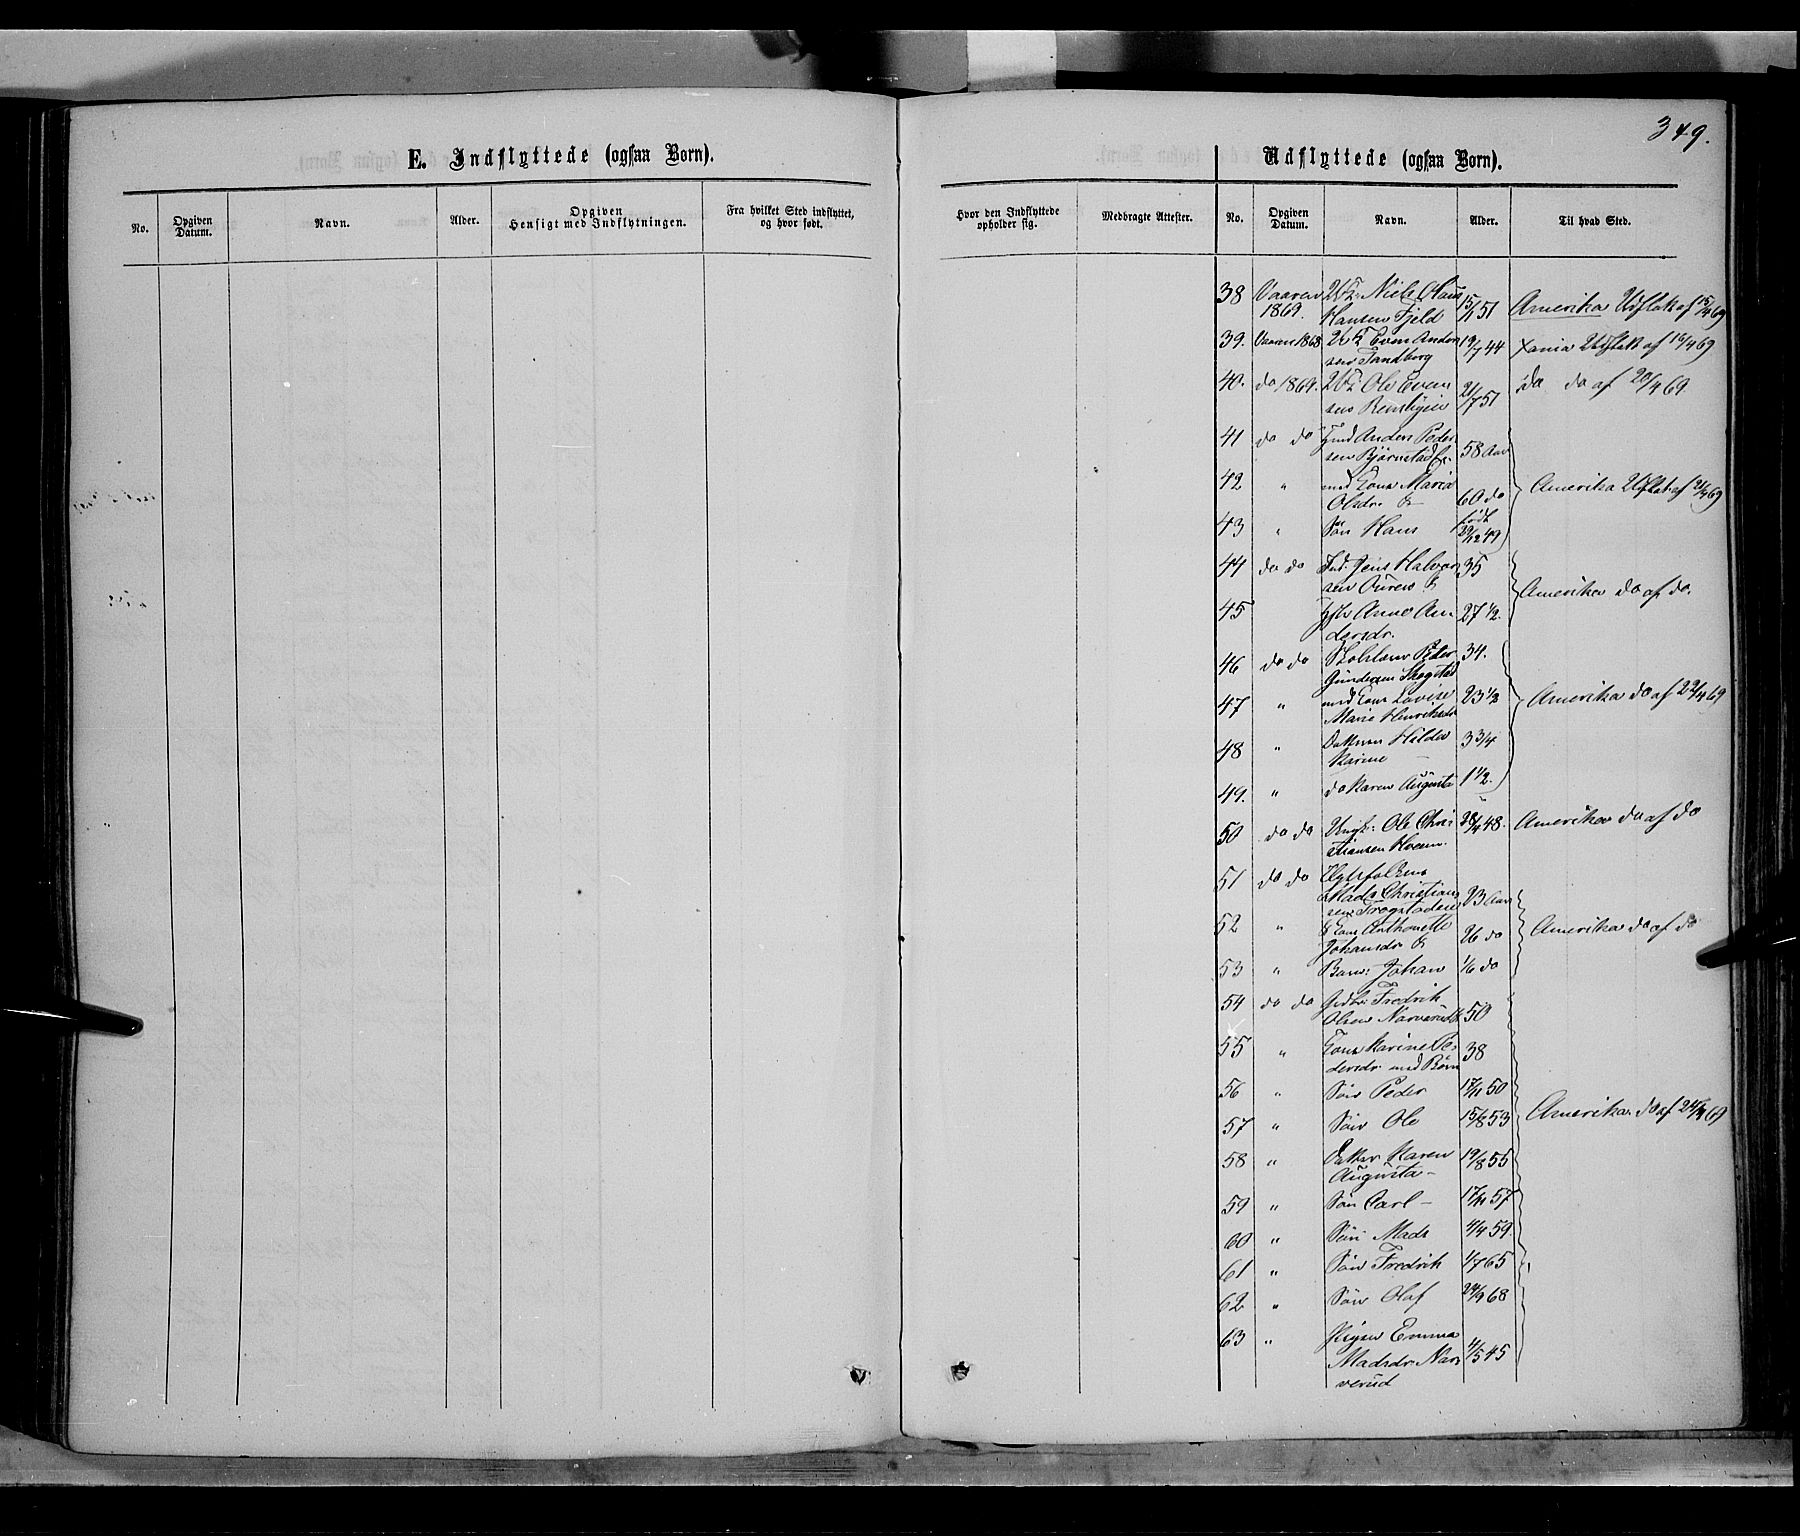 349.
E. Indflyttede (ogsaa Børn).
Udflyttede (ogsaa Børn).
No. Opgiven Datum. Navn. Alder. Opgiven Hensigt med Indflytningen. Fra hvilket Sted indflyttet, og hvor født. Hvor den Indflyttede opholder sig. Medbragte Attester. No. Opgiven Datum. Navn. Alder. Til hvad Sted.
38 Vaaren Niels Olaus
1869. Hansen Fjeld 15/1 51 Amerika Udflat. af 15/4 69
39. Vaaren 1868 Even Ander 19/7 44 Xania Udflatt af 16/4 69
sen Tandberg
40. do 1869. Ole Even 21/7 51 do do af 20/4 69
sen
41 do do Anders Peder
sen Bjørnstad 58 Aar
42 " med Kone Maria Amerika Udflat. af 21/4 69
Olsdr. & 60 do
43 " Søn Hans født 29/12 49
44 do do Ind. Jens Halvor 35
sen & Amerika do af do.
45 Anne An 27 1/2.
dersdr.
46 do do Peder 34.
Gundersen Skogstad
47 " med Kone Lovise 23 1/2 Amerika do af 22/4 69
Marie Henriksdr
48 " Datteren Hilda 3 3/4
Karine —
49. " do Karen Augusta 1 1/2.
50 do do Ungk: Ole Chri 28/4 48. Amerika do af do
stiansen
51 do do
Mads Christian 23 Aar
sen Trogstadeie
52 " & Kone Anthonette Amerika do af do
Johansdr & 26 do
53 " Barn: Johan 1/6 do
54 do do Fredrik
Olsen Narverud & 50
55 " Kone Karine Pe 38
dersdr. med Børn
56 " Søn Peder 17/11 50
57 " Søn Ole 15/8 53 Amerika do af 24/4 69
58 " Datter Karen 19/8 55
Augusta —
59 " Søn Carl — 17/11 57
60 " Søn Mads 4/4 59
61 " Søn Fredrik 1/7 65
62 " Søn Olaf 24/9 68
63 " Pigen Emma
Madsdr. Nar 4/5 45
verud